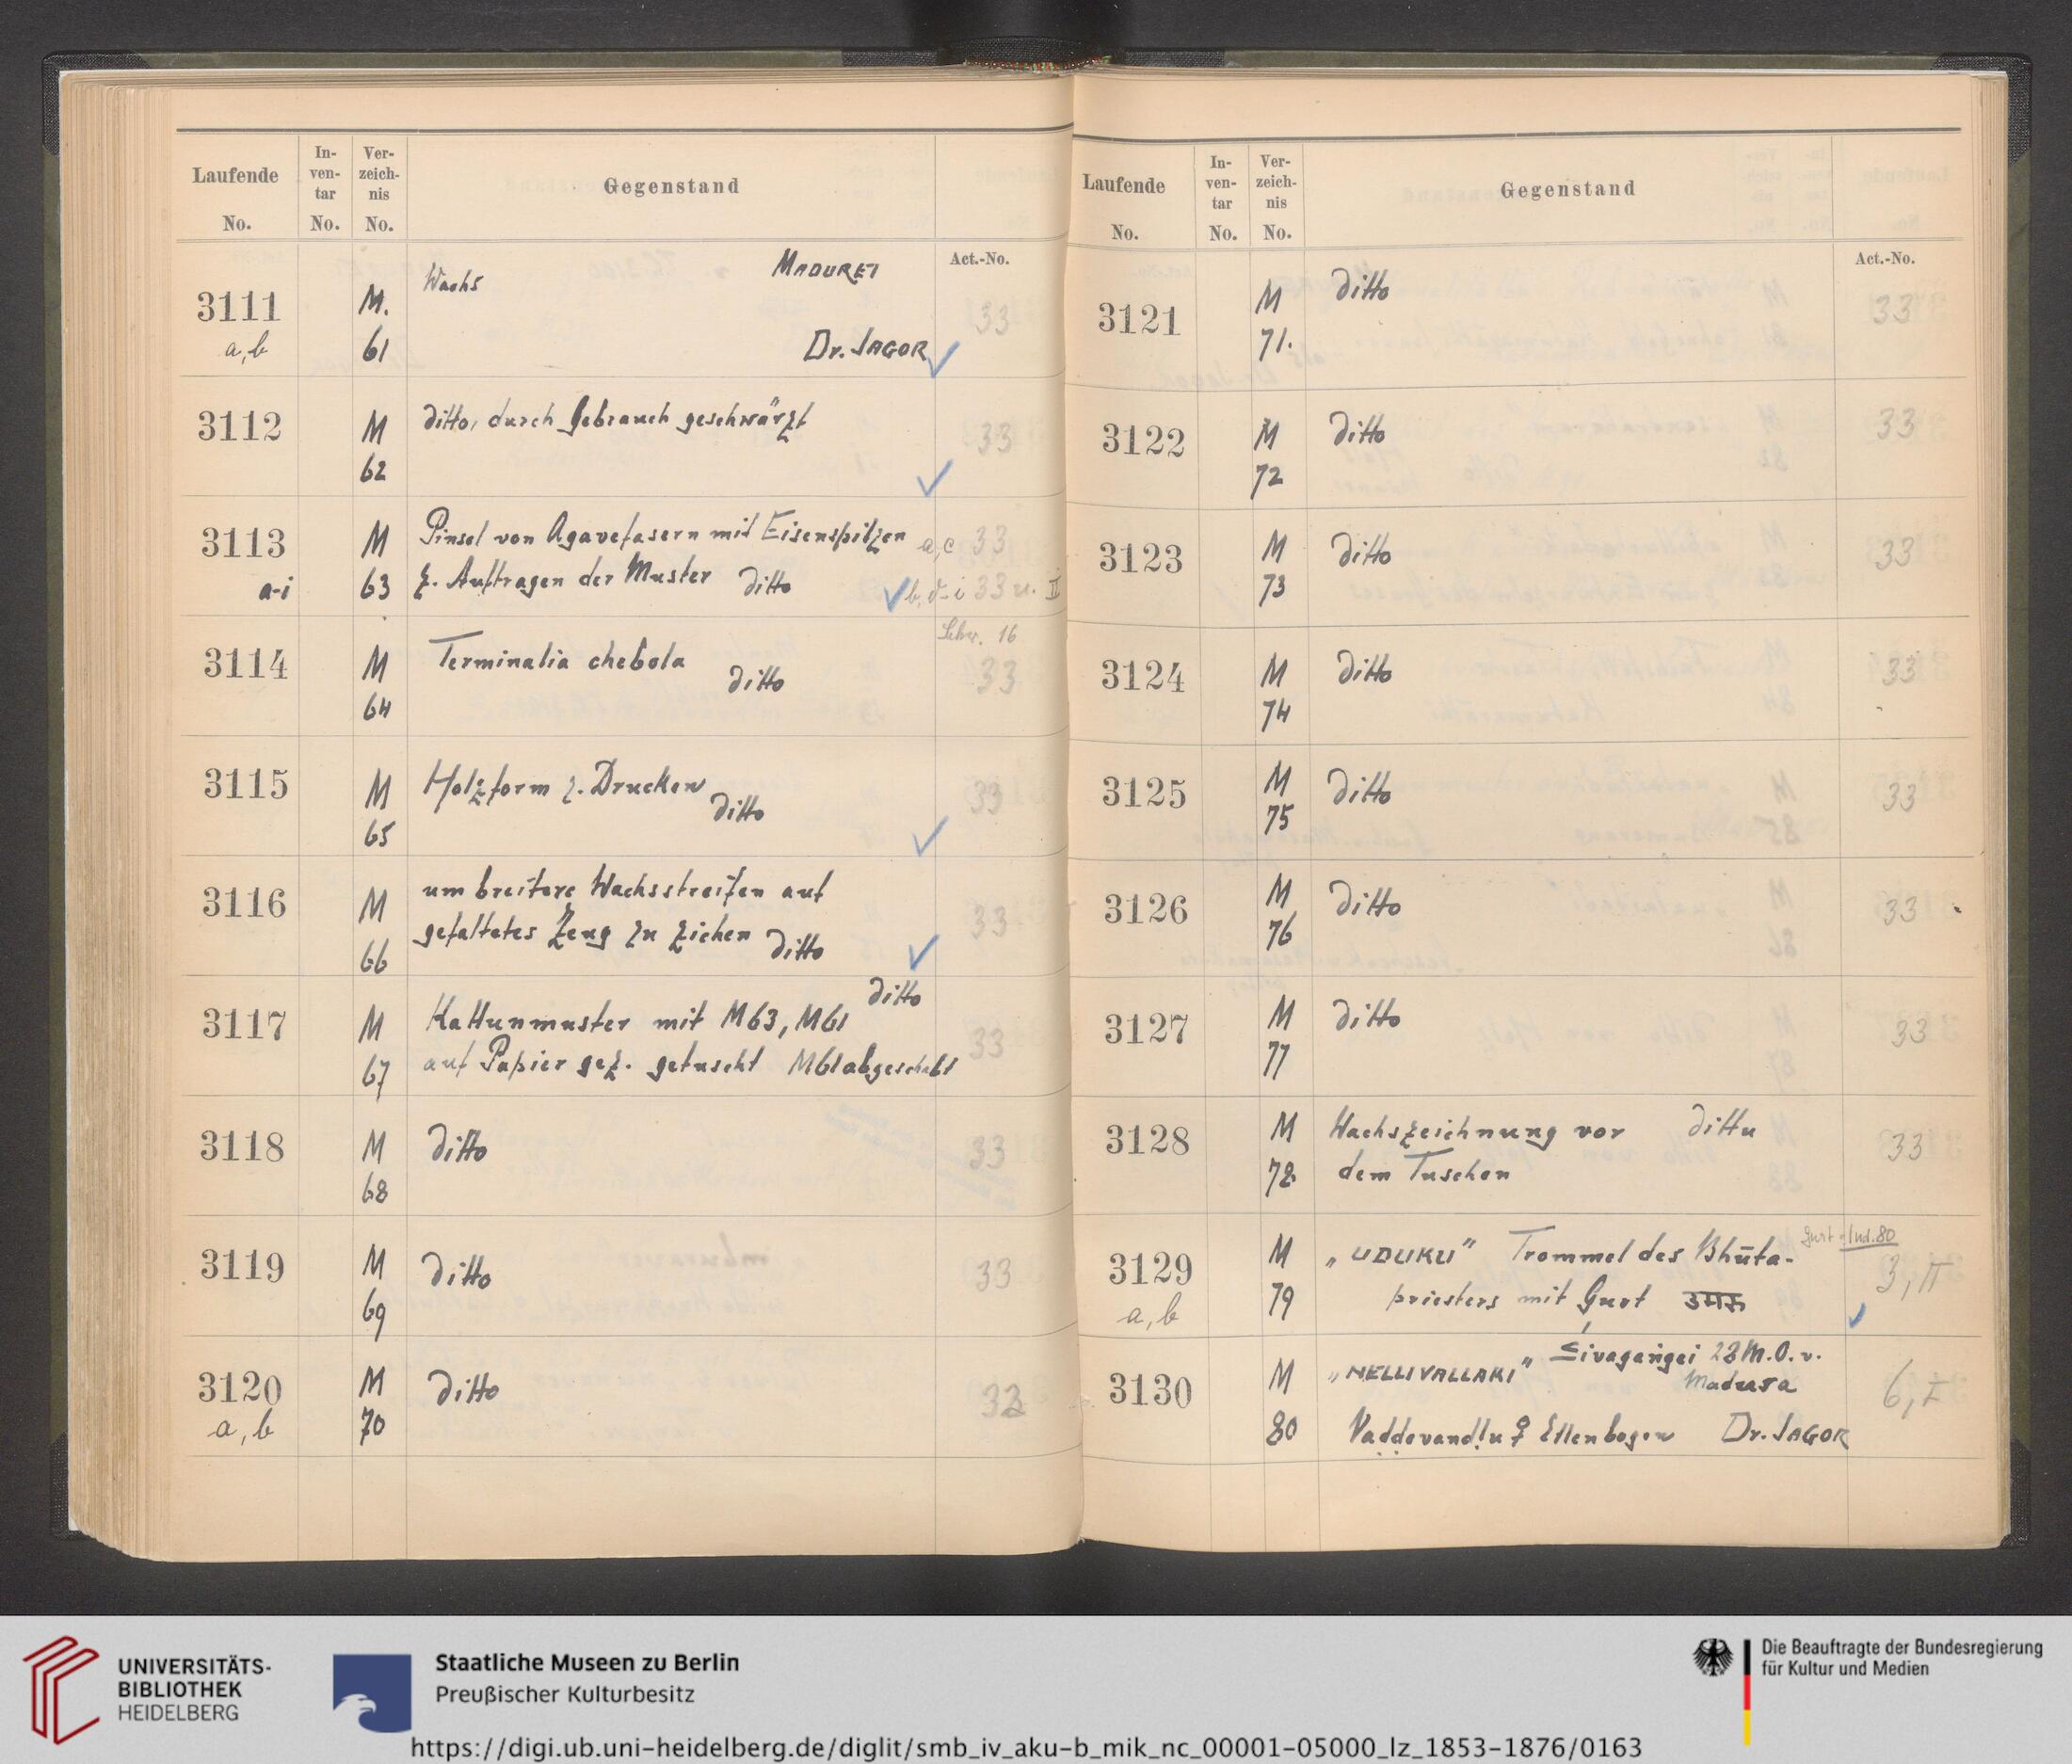 Laufende No.
In-ven-tar No.
Ver-zeich-nis No.
Gegenstand
Act.-No.
3111 a, b M. 61 Wachs MADUREI
Dr. JAGOR 33
3112 M 62 ditto, durch Gebrauch geschwärzt 33
3113 a-i M 63 Pinsel von Agavefasern mit Eisenspitzen a, c 33
z. Auftragen der Muster ditto b, d-i 33 u. II
3114 M 64 Terminalia chebola ditto Schr. 16
33
3115 M 65 Holzform z. Drucken ditto 33
3116 M 66 um breitere Wachsstreifen auf
gefaltetes Zeug zu ziehen ditto 33
3117 M 67 ditto
Kattunmuster mit M 63, M 61
auf Papier gez. getuscht M 61 abgeschabt 33
3118 M 68 ditto 33
3119 M 69 ditto 33
3120 a, b M 70 ditto 33
Laufende No.
In-ven-tar No.
Ver-zeich-nis No.
Gegenstand
Act.-No.
3121 M 71. ditto 33
3122 M 72 ditto 33
3123 M 73 ditto 33
3124 M 74 ditto 33
3125 M 75 ditto 33
3126 M 76 ditto 33
3127 M 77 ditto 33
3128 M 78 Wachszeichnung vor ditto
dem Tuschen 33
3129 a, b M 79 „UDUKU" Trommel des Bhūta- Gurt = Ind. 80
priesters mit Gurt उमरु 3, II
3130 M 80 „NELLIVALLAKI" Śivagangei 28 M. O. v.
Madura 6, I
Vaddevandlu ♀ Ellenbogen Dr. JAGOR
UNIVERSITÄTS-
BIBLIOTHEK
HEIDELBERG
Staatliche Museen zu Berlin
Preußischer Kulturbesitz
Die Beauftragte der Bundesregierung
für Kultur und Medien
https://digi.ub.uni-heidelberg.de/diglit/smb_iv_aku-b_mik_nc_00001-05000_lz_1853-1876/0163